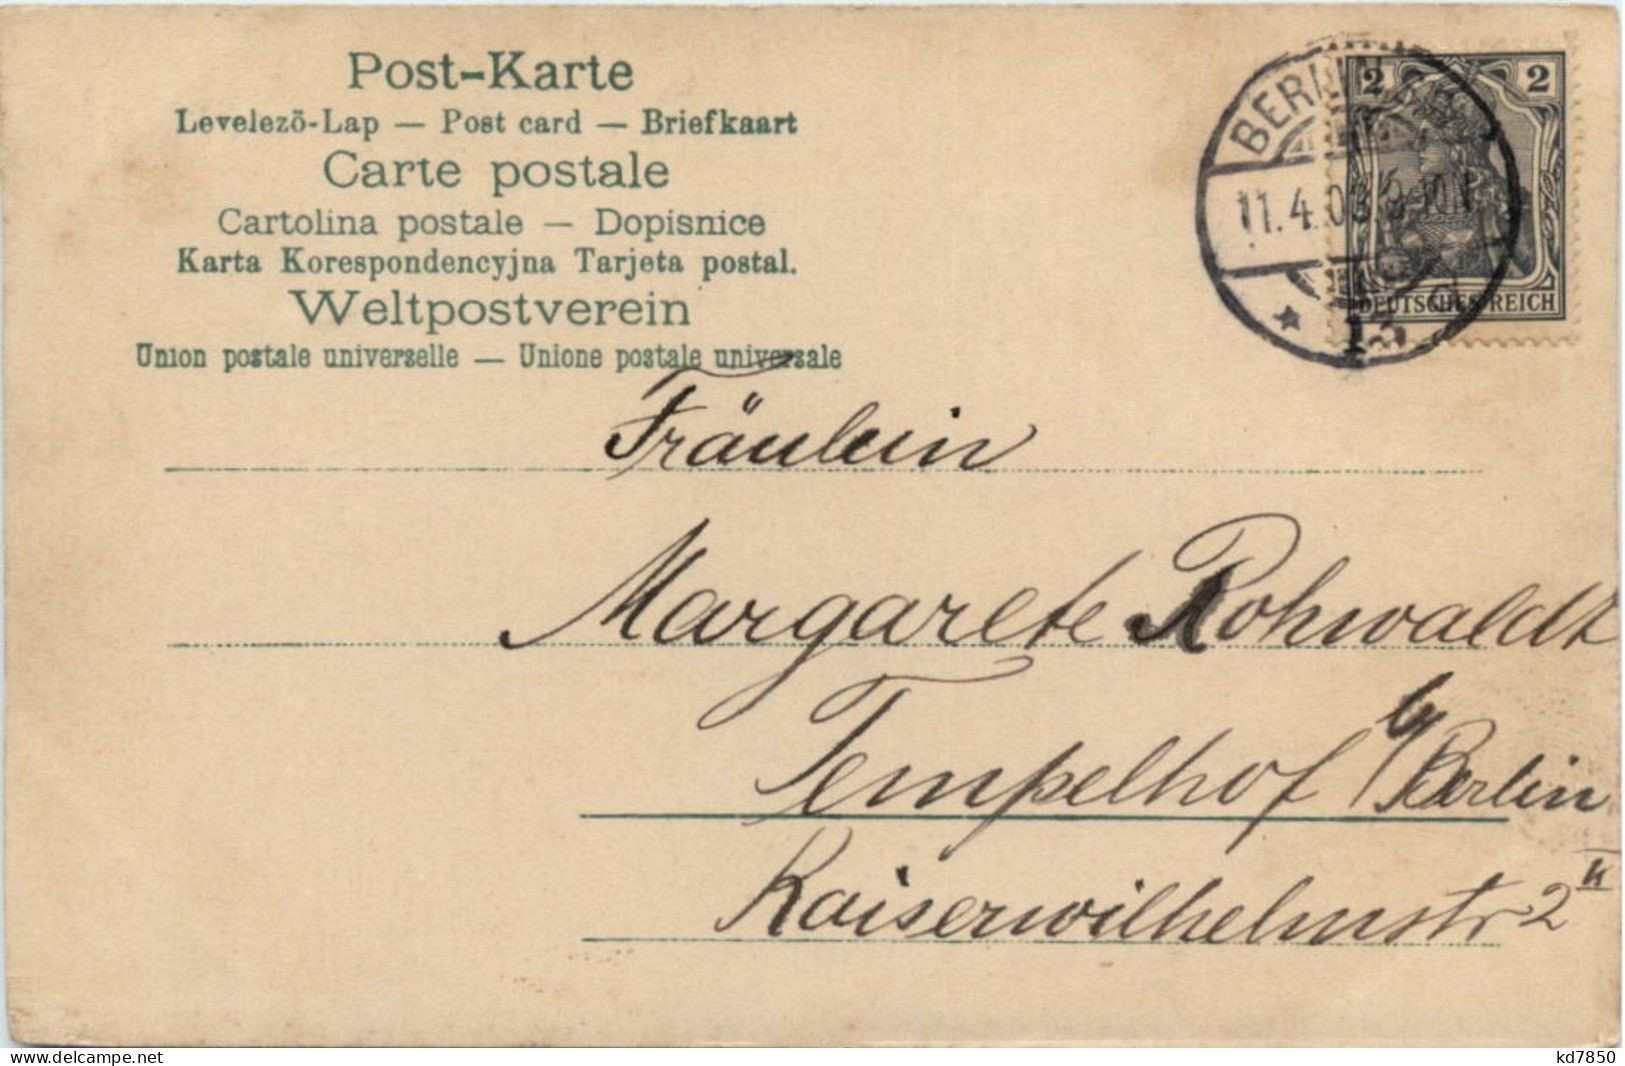 Post-Karte
Levelező-Lap — Post card — Briefkaart
Carte postale
Cartolina postale — Dopisnice
Karta Korespondencyjna Tarjeta postal.
Weltpostverein
Union postale universelle — Unione postale universale
BERLIN
11.4.03.
* 13
2 2
DEUTSCHES REICH
Fräulein
Margarete Rohwaldt
Tempelhof b/Berlin
Kaiserwilhelmstr 2 II
www.delcampe.net
kd7850